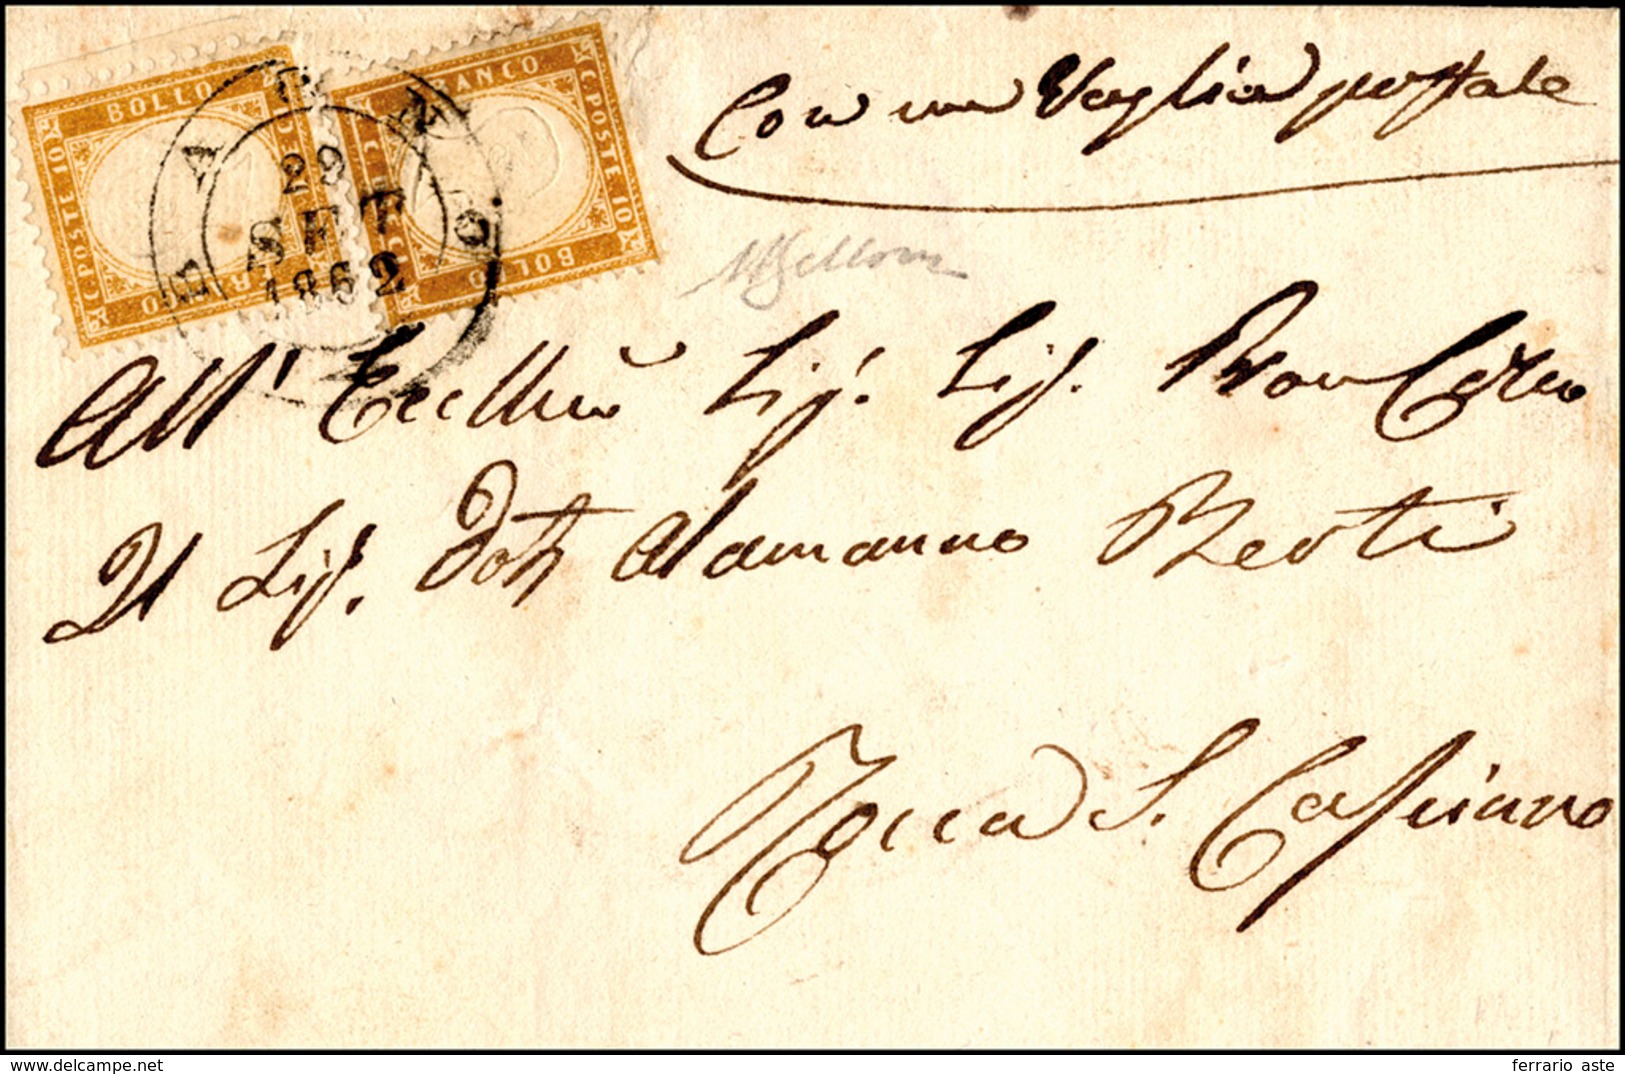 BOLLO
C. POSTE 10
FRANCO
C. POSTE 10
BOLLO
29
SET
1862
Con un Vaglia postale
All' Eccllmo Sig. Sig. Pron Colmo
Il Sig. Dott Alamanno Berti
Rocca S. Casciano
ferrario aste